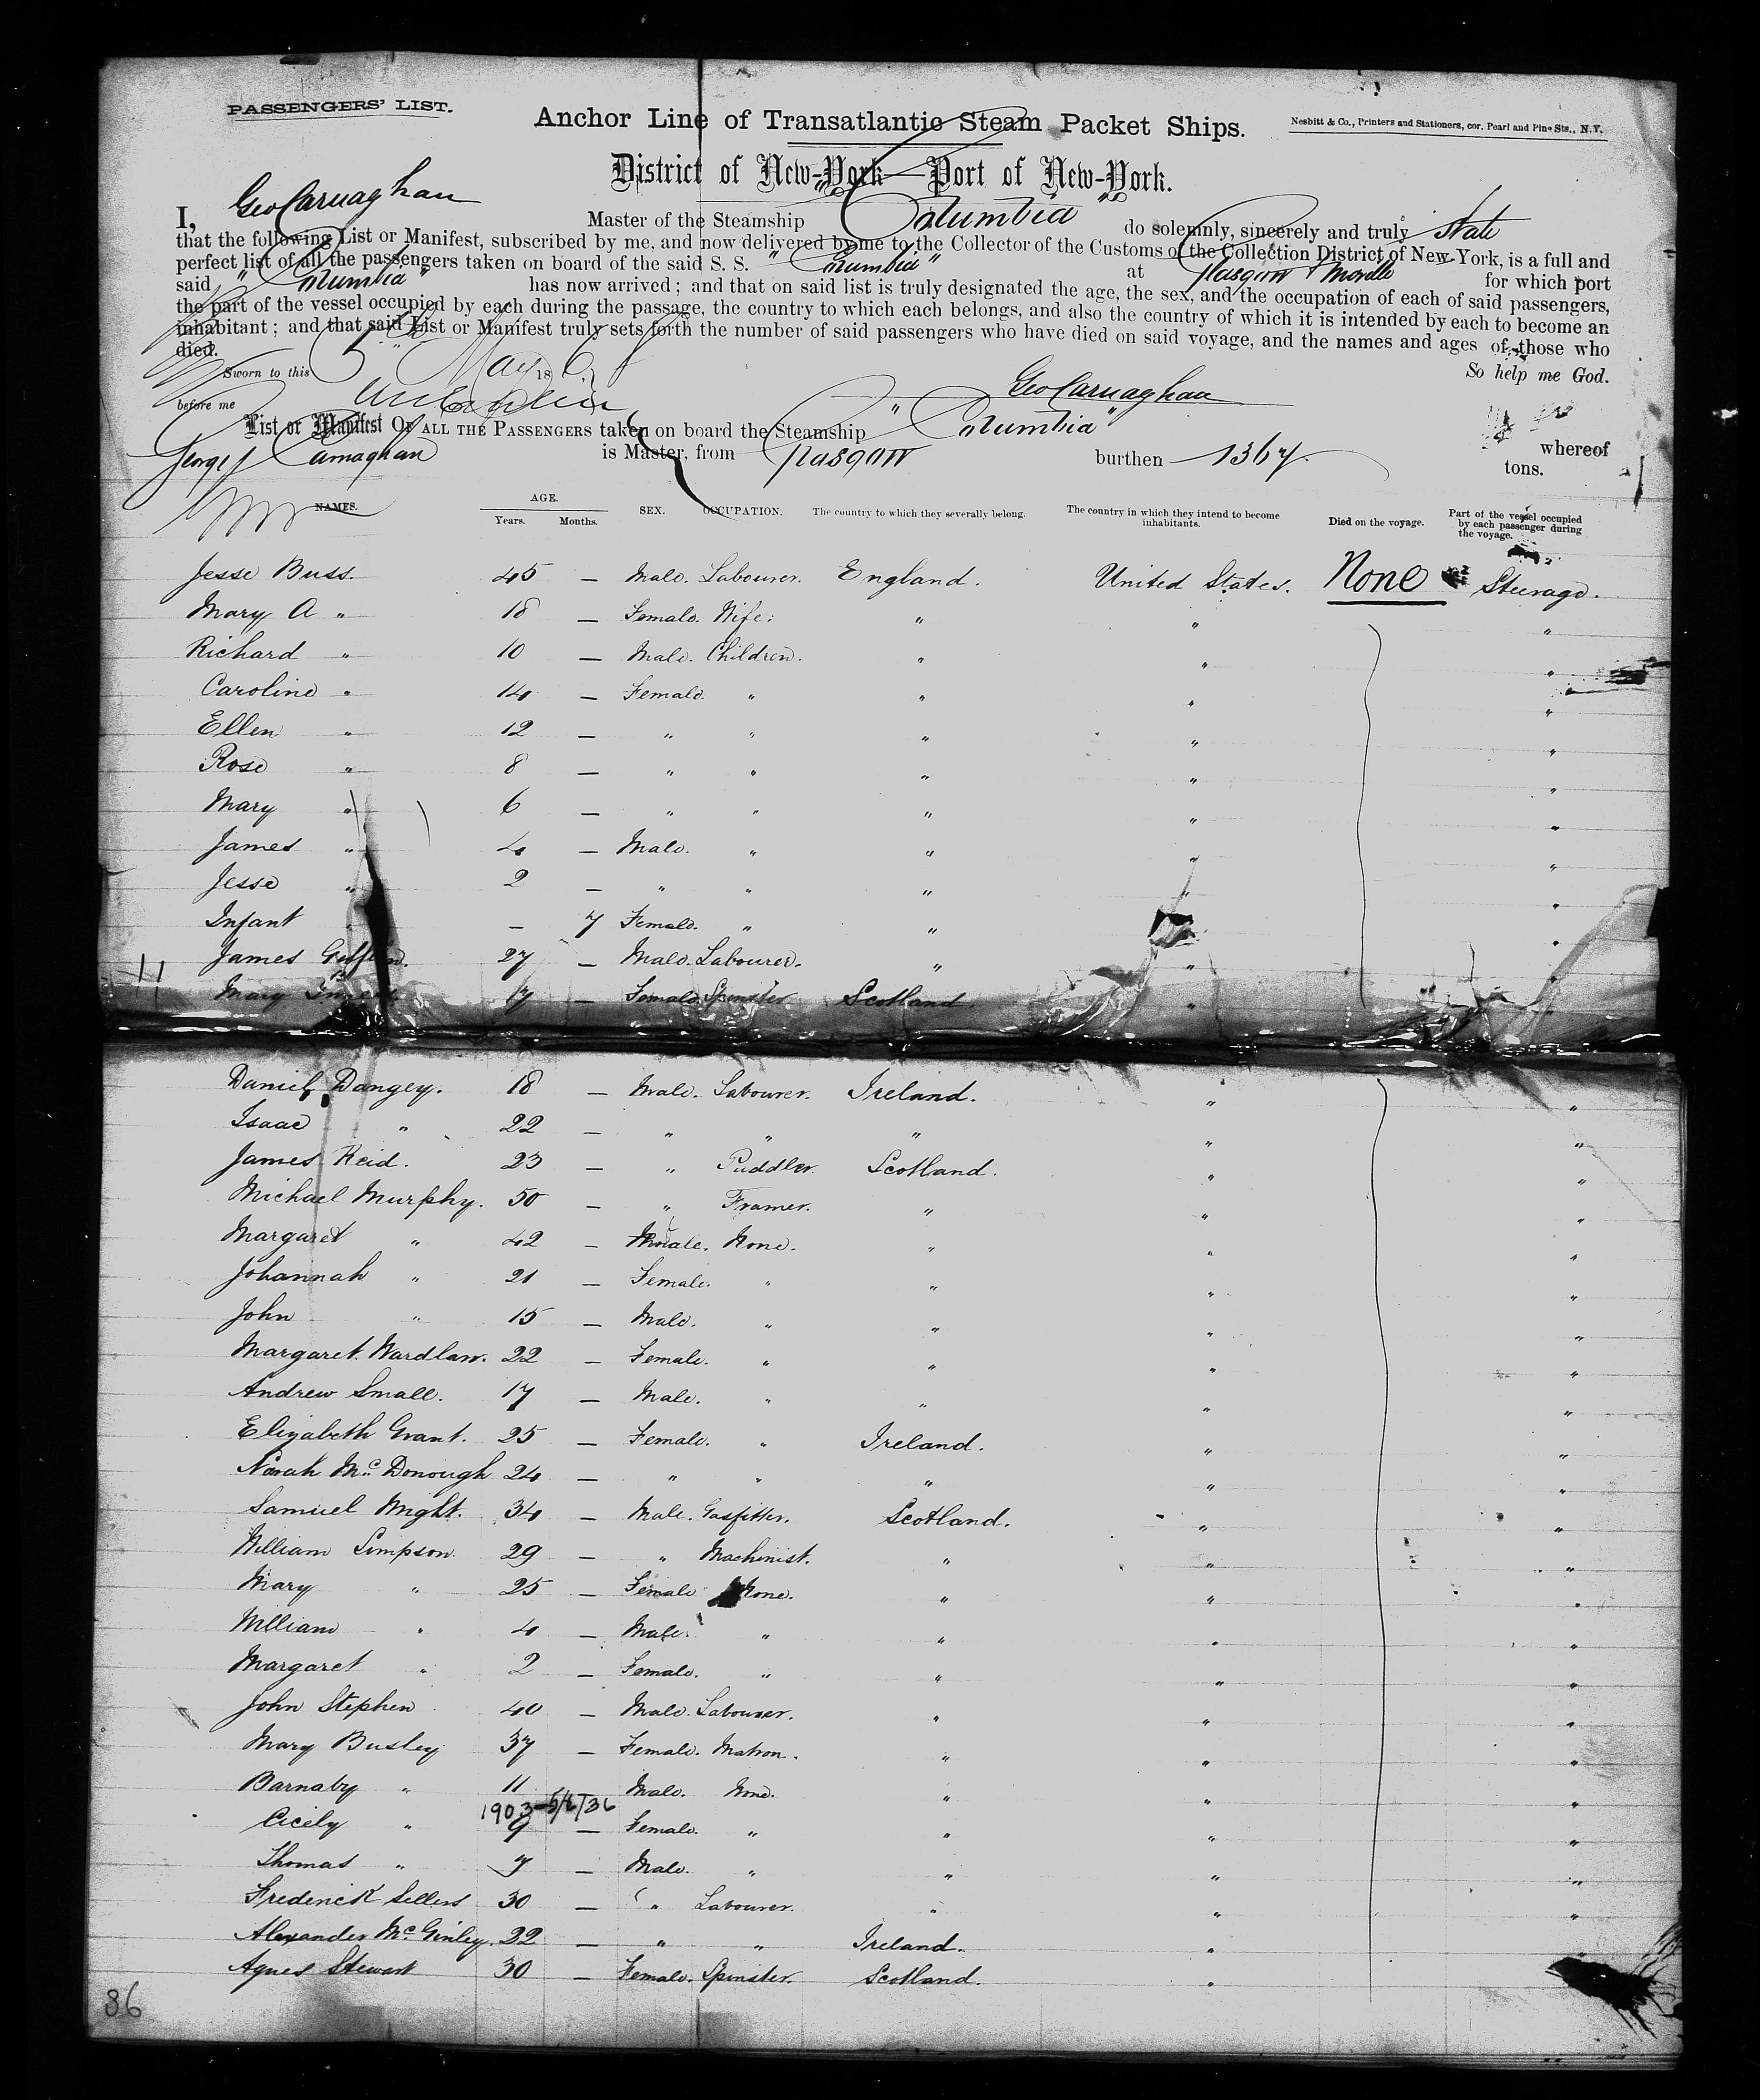 PASSENGERS' LIST.
Anchor Line of Transatlantic Steam Packet Ships.
Nesbitt & Co., Printers and Stationers, cor. Pearl and Pine Sts., N.Y.
District of New-York—Port of New-York.
I, Geo Carnaghan Master of the Steamship "Columbia" do solemnly, sincerely and truly State
that the following List or Manifest, subscribed by me, and now delivered by me to the Collector of the Customs of the Collection District of New-York, is a full and
perfect list of all the passengers taken on board of the said S. S. "Columbia" at Glasgow & Moville for which port
said "Columbia" has now arrived; and that on said list is truly designated the age, the sex, and the occupation of each of said passengers,
the part of the vessel occupied by each during the passage, the country to which each belongs, and also the country of which it is intended by each to become an
inhabitant; and that said List or Manifest truly sets forth the number of said passengers who have died on said voyage, and the names and ages of those who
died.
So help me God.
Sworn to this May 18
before me Geo Carnaghan
List or Manifest OF ALL THE PASSENGERS taken on board the Steamship "Columbia" whereof
George Carnaghan is Master, from Glasgow burthen 1367 tons.
NAMES. AGE. Years. Months. SEX. OCCUPATION. The country to which they severally belong. The country in which they intend to become inhabitants. Died on the voyage. Part of the vessel occupied by each passenger during the voyage.
Jesse Buss. 45 — Male. Labourer. England. United States. None Steerage.
Mary A " 18 — Female. Wife. " " "
Richard " 10 — Male. Children. " " "
Caroline " 14 — Female. " " " "
Ellen " 12 — " " " " "
Rose " 8 — " " " " "
Mary " 6 — " " " " "
James " 4 — Male. " " " "
Jesse " 2 — " " " " "
Infant — 7 Female. " " "
James 27 — Male. Labourer. " " "
Mary 17 — Female Spinster Scotland. "
Daniel Dangey. 18 — Male. Labourer. Ireland. " "
Isaac " 22 — " " " " "
James Reid. 23 — " Puddler. Scotland. " "
Michael Murphy. 50 — " Framer. " " "
Margaret " 42 — None. " " "
Johannah " 21 — Female. " " " "
John " 15 — Male. " " " "
Margaret Wardlaw. 22 — Female. " " " "
Andrew Small. 17 — Male. " " " "
Elizabeth Grant. 25 — Female. " Ireland. " "
Norah McDonough 24 — " " " " "
Samuel Wright. 34 — Male. Gasfitter. Scotland. " "
William Simpson. 29 — " Machinist. " " "
Mary " 25 — Female None. " " "
William " 4 — Male. " " " "
Margaret " 2 — Female. " " " "
John Stephen 40 — Male. Labourer. " " "
Mary Busley 37 — Female. Matron. " " "
Barnaby " 11 Male. None. " " "
1903-5/8/36
Cicely " 9 — Female. " " " "
Thomas " 7 — Male. " " " "
Frederick Sellers 30 — " Labourer. " " "
Alexander McGinley. 22 — " " Ireland. " "
Agnes Stewart 30 — Female. Spinster. Scotland. "
86